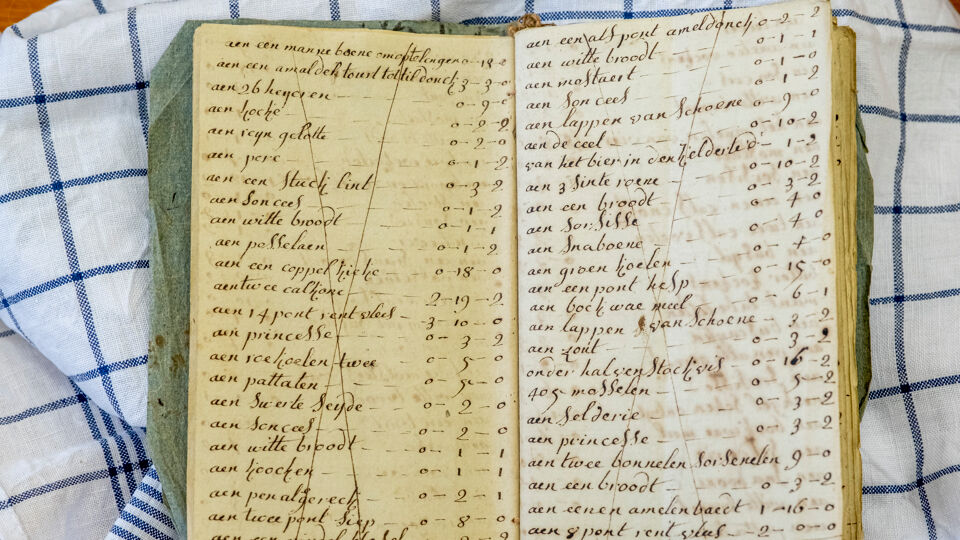 aen een manne boene op te lengen 0-18-0
aen een amaldch tourt tot til donck 3-3-0
aen 26 keyeren 0-9-0
aen koeke 0-2-2
aen reyn gelotte 0-2-0
aen pere 0-1-2
aen een stuck lint 0-3-2
aen Sonceel 0-1-2
aen witte broodt 0-1-1
aen posselaen 0-1-2
aen een coppel kieke 0-18-0
aen twee calkone 2-19-2
aen 14 pont rent vlees 3-10-0
aen princesse 0-3-2
aen roekoelen twee 0-5-0
aen pattalen 0-5-0
aen Swerte Seyde 0-2-0
aen Sonceel 0-2-0
aen witte broodt 0-1-1
aen koocken 0-1-1
aen 0-2-1
aen twee pont Siep 0-8-0
aen een half pont ameldonck 0-2-2
aen witte broodt 0-1-1
aen mostaert 0-1-0
aen Sonceel 0-1-2
aen lappen van Schoene 0-9-0
aen de ceel 0-10-2
van het bier in den kelder 1-2
aen 3 Sinte roene 0-10-2
aen een broodt 0-3-2
aen Sorsisse 0 4 0
aen Snaboene 4 0
aen groen koelen 0-4-0
aen een pont hesp 0-15-0
aen bockwae meel 0-6-1
aen lappen van Schoene 0-3-2
aen zout 0-3-2
onder halven Stockvis 0-16-2
405 mosselen 0-5-2
aen Selderie 0-3-2
aen princesse 0-3-2
aen twee bonnelen Sorsenelen 9-0
aen een broodt 0-3-2
aen eenen amelenbaedt 1-16-0
aen 8 pont rent vlees 2-0-0